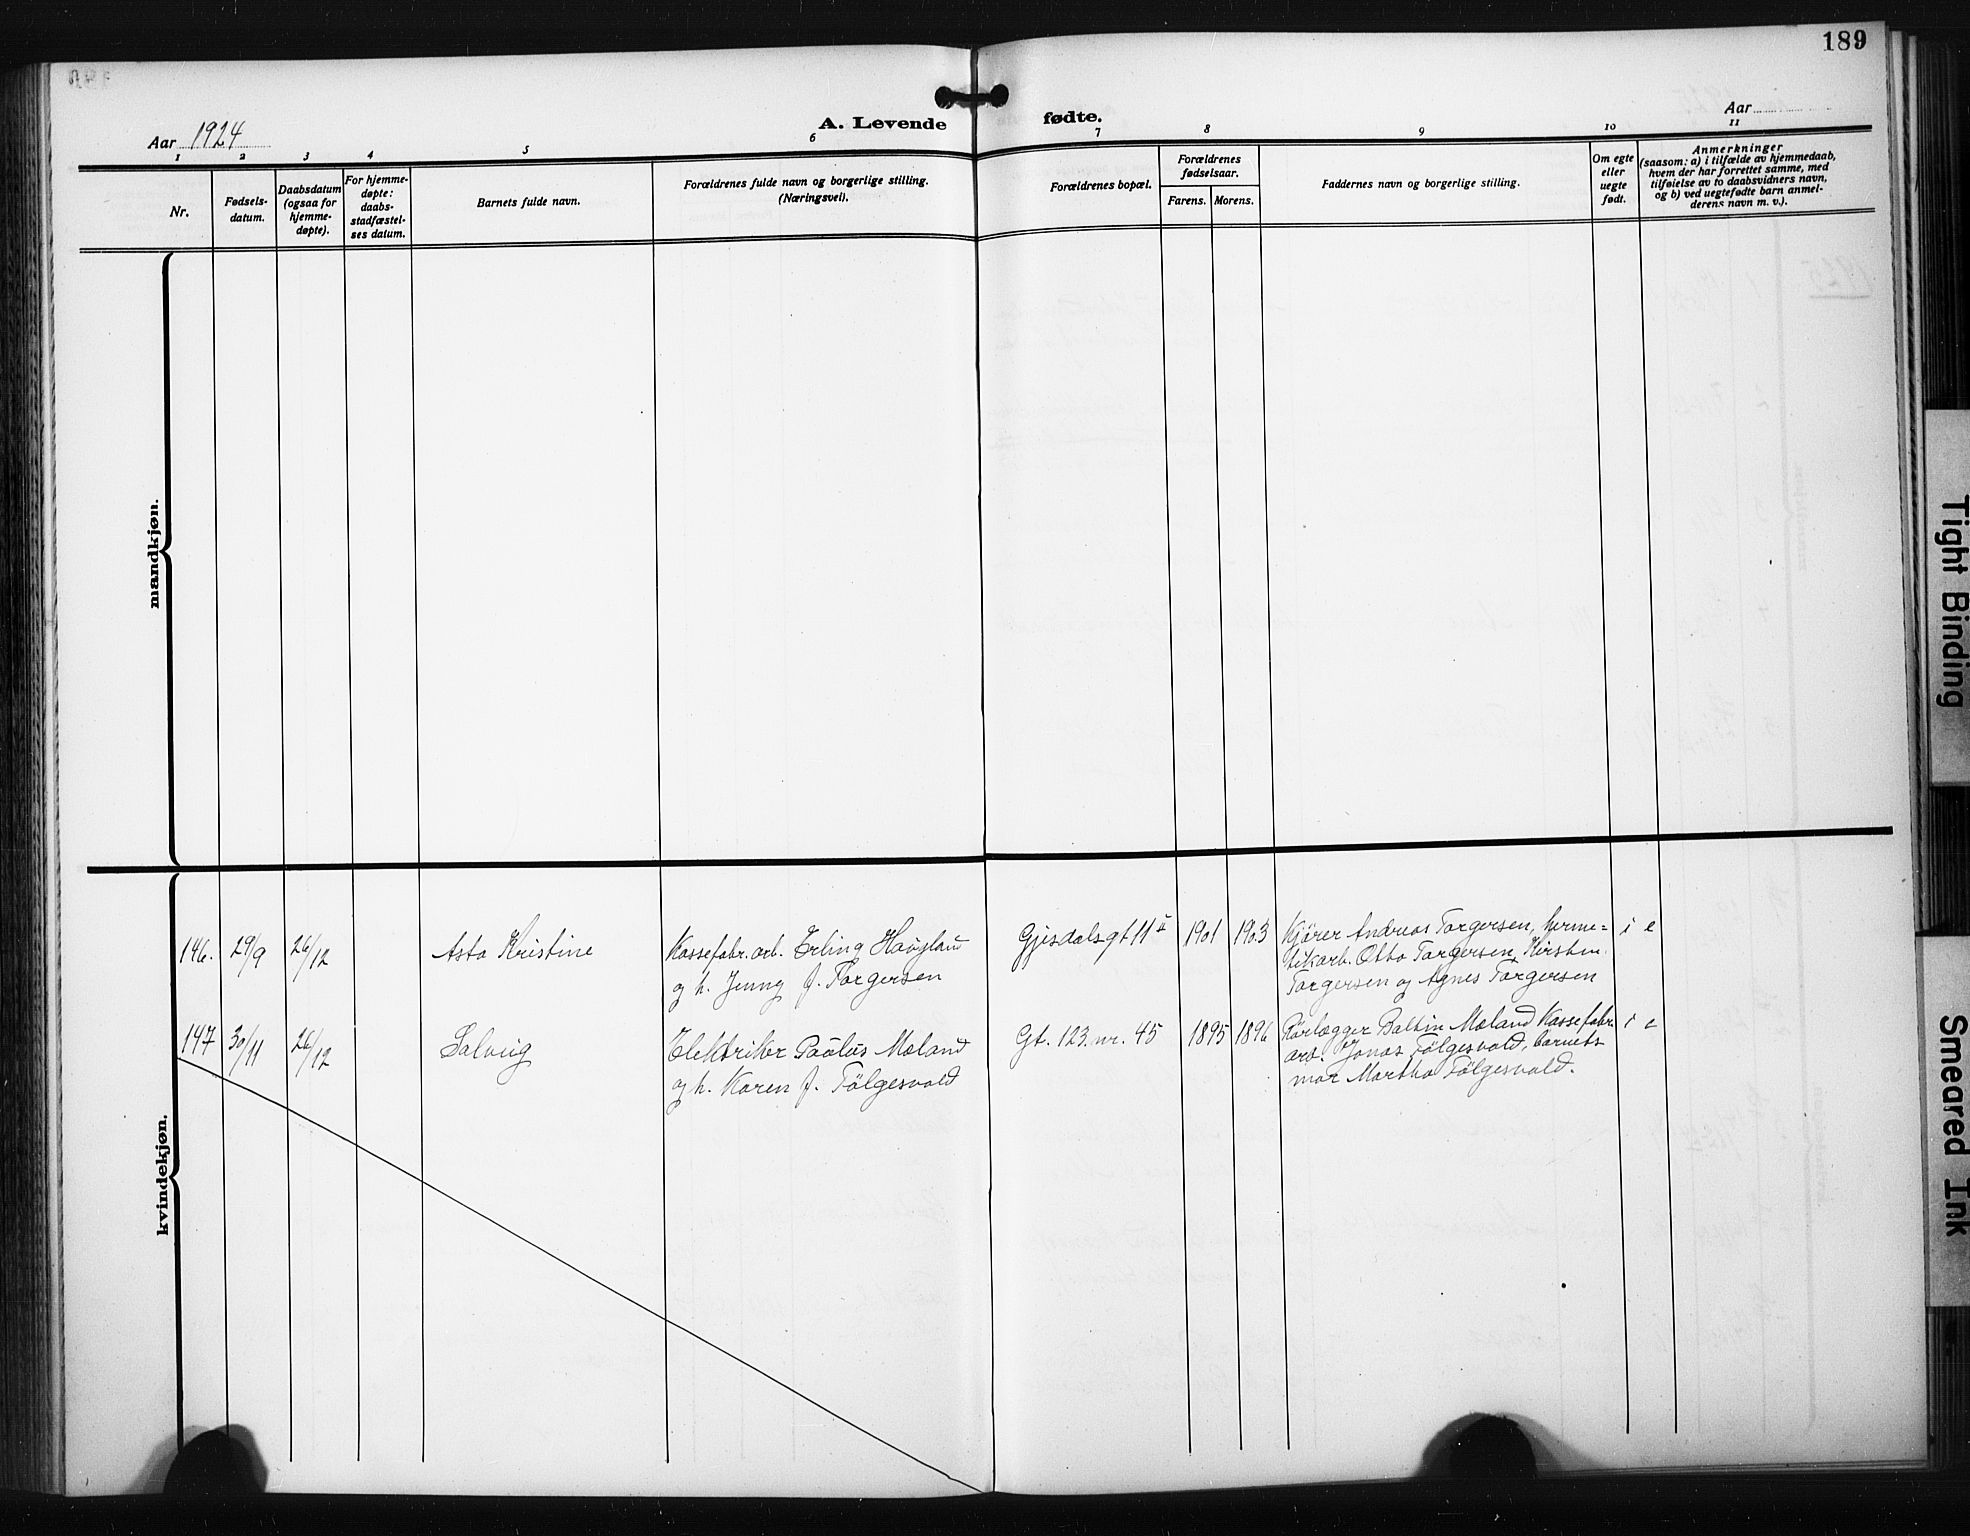 189
Aar 1924
A. Levende fødte.
Aar
1 2 3 4 5 6 7 8 9 10 11
Nr.
Fødsels-
datum.
Daabsdatum
(ogsaa for
hjemme-
døpte).
For hjemme-
døpte:
daabs-
stadfæstel-
ses datum.
Barnets fulde navn.
Forældrenes fulde navn og borgerlige stilling.
(Næringsvei).
Forældrenes bopæl.
Forældrenes
fødselsaar.
Farens. Morens.
Faddernes navn og borgerlige stilling.
Om egte
eller
uegte
født.
Anmerkninger
(saasom: a) i tilfælde av hjemmedaab,
hvem der har forrettet samme, med
tilføielse av to daabsvidners navn,
og b) ved uegtefødte barn anmel-
derens navn m. v.).
mandkjøn.
kvindekjøn.
146. 29/9 26/12 Asta Kristine
Kassefabr. arb. Erling Haugland
og h. Jenny f. Torgersen
Gjesdalsgt 11 II 1901 1903
Kjører Andreas Torgersen, herme=
tikarb. Otto Torgersen, Kirsten
Torgersen og Agnes Torgersen
i e
147 30/11 26/12 Solveig
Elektriker Paulus Mæland
og h. Karen f. Følgesvold
Gt. 123 nr. 45 1895 1896
Rørlægger Baltin Mæland Kassefabr.
arb. Jonas Følgesvold, barnets
mor Martha Følgesvold.
i e
Tight Binding
Smeared Ink